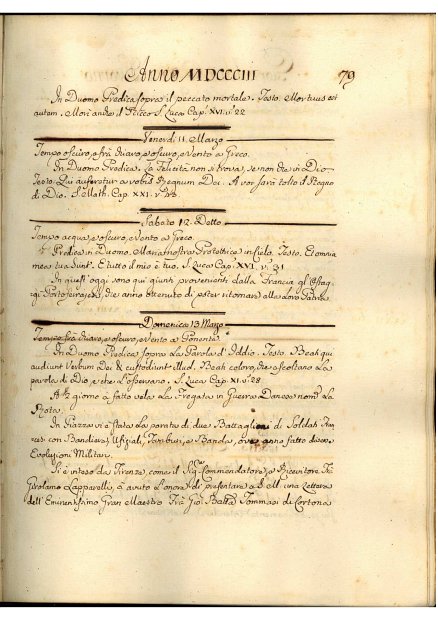 Anno MDCCCIII 79
In Duomo Predica sopra il peccato mortale. Testo. Mortuus est
autem. Morì anche il Ricco S. Luca Cap. XVI. v. 22
Venerdì 11. Marzo
Tempo oscuro, e frà chiaro, e oscuro, e vento a Greco.
In Duomo Predica. La Felicità non si trova, se non che in Dio
Testo. Qui auferetur a vobis Regnum Dei. A voi sarà tolto il Regno
di Dio. S. Math. Cap. XXI. v. 43.
Sabato 12. Detto
Tempo acqua, e oscuro, e vento a Greco.
Predica in Duomo. Maria nostra Protettrice in Cielo. Testo. Et omnia
mea tua sunt. E tutto il mio è tuo. S. Luca Cap. XVI. v. 31
In quest'oggi sono qui giunti provenienti dalla Francia gl'
Portoferrajesi, che anno ottenuto di poter ritornare alla Loro Patria
Domenica 13 Marzo
Tempo frà chiaro, e oscuro, e vento a Ponente.
In Duomo Predica sopra La Parola d'Iddio. Testo. Beati qui
audiunt Verbum Dei & custodiunt illud. Beati coloro, che ascoltano La
parola di Dio, e che L'osservano. S. Luca Cap. XI. v. 28
A giorno à fatto vela La Fregata in Guerra Danese nom.
Rota.
In Piazza vi è stata La parata di due Battaglioni di Soldati
con Bandiera, Ufiziali, Tamburi, e Banda, ove anno fatto diverse
Evoluzioni Militari.
Si è inteso da Firenze, come il Sig. Commendatore, e Ricevitore Fr.
Girolamo Lapparelli, à avuto L'onore di presentare a S. M. una Lettera
dell'Eminentissimo Gran Maestro Frà Gio. Batta Tommasi di Cortona